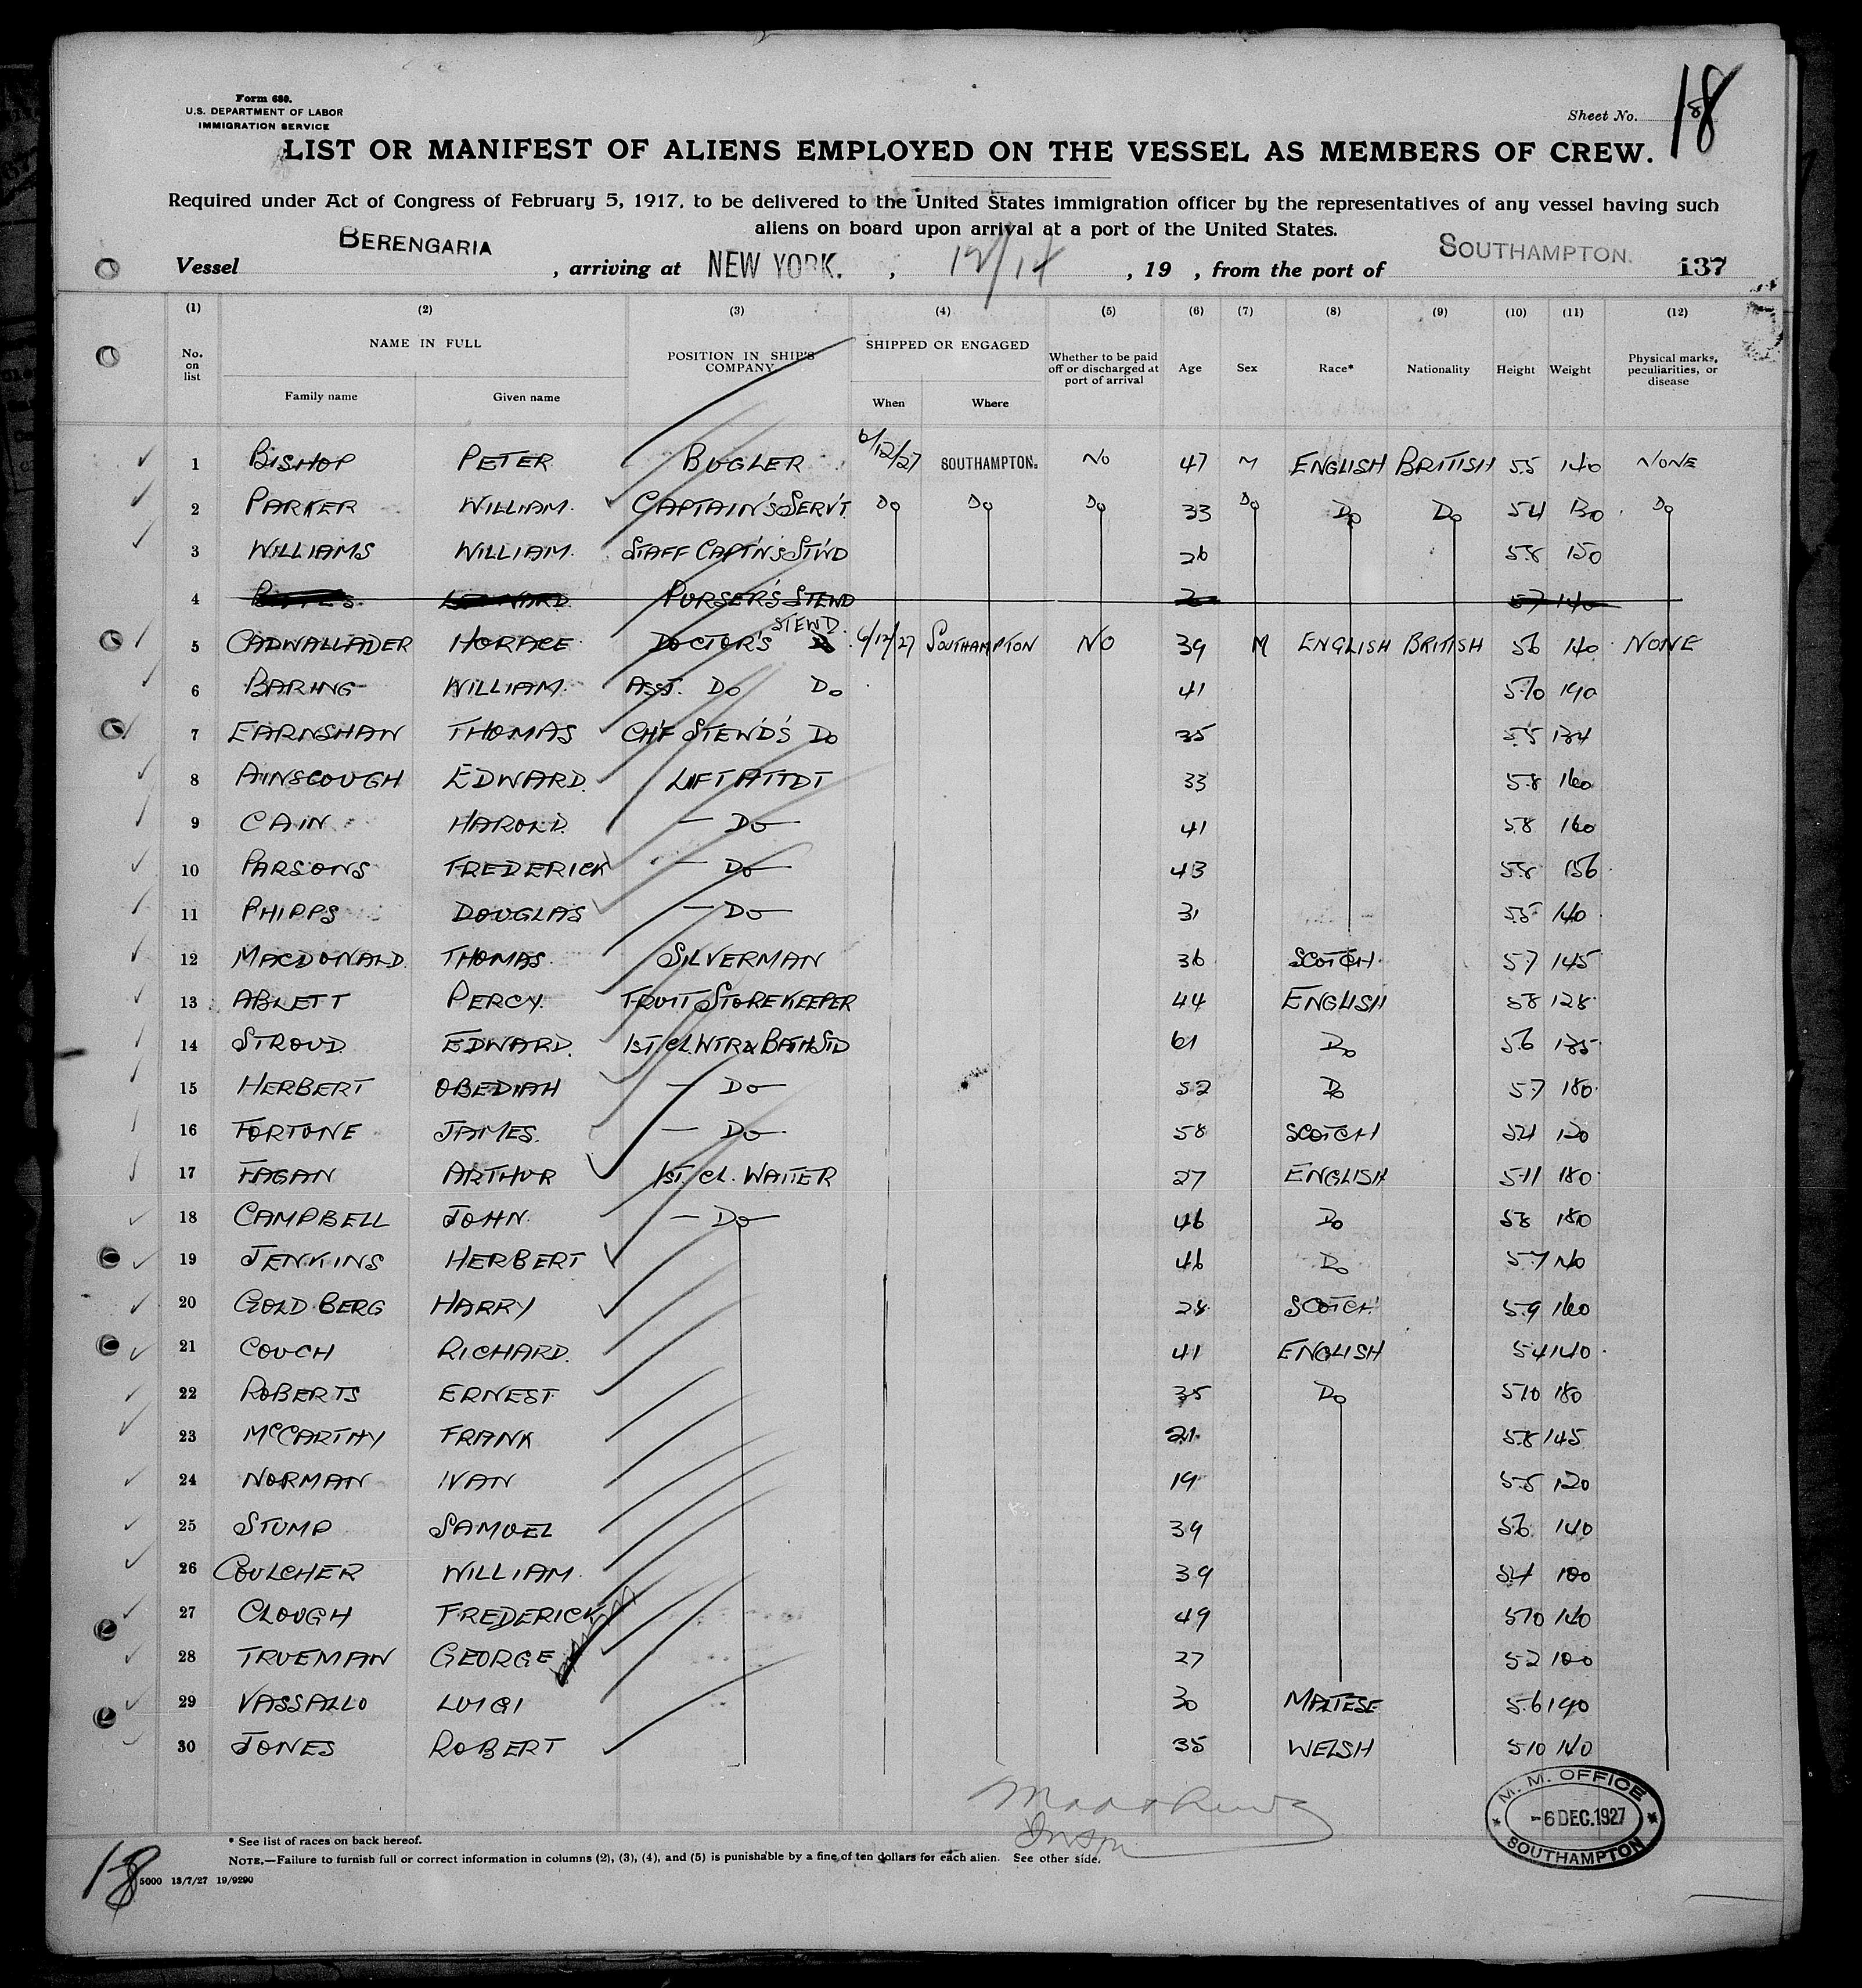 Form 680.
U.S. DEPARTMENT OF LABOR
IMMIGRATION SERVICE
Sheet No. 18
LIST OR MANIFEST OF ALIENS EMPLOYED ON THE VESSEL AS MEMBERS OF CREW.
Required under Act of Congress of February 5, 1917, to be delivered to the United States immigration officer by the representatives of any vessel having such
aliens on board upon arrival at a port of the United States.
Vessel BERENGARIA, arriving at NEW YORK., 12/14, 19 , from the port of SOUTHAMPTON. 137
(1) (2) (3) (4) (5) (6) (7) (8) (9) (10) (11) (12)
No. on list NAME IN FULL POSITION IN SHIP'S COMPANY SHIPPED OR ENGAGED Whether to be paid off or discharged at port of arrival Age Sex Race* Nationality Height Weight Physical marks, peculiarities, or disease
Family name Given name When Where
1 BISHOP PETER BUGLER 6/12/27 SOUTHAMPTON. NO 47 M ENGLISH BRITISH 5.5 140 NONE
2 PARKER WILLIAM. CAPTAIN'S SERV'T. DO DO DO 33 DO DO DO 5.4 130 DO
3 WILLIAMS WILLIAM. STAFF CAPT'N'S ST'WD 26 5.8 150
4 PURSER'S STEWD 5.7 140
5 CADWALLADER HORACE DOCTOR'S STEWD. 6/12/27 SOUTHAMPTON NO 39 M ENGLISH BRITISH 5.6 140 NONE
6 BARING WILLIAM. ASST. DO DO 41 5.10 190
7 EARNSHAW THOMAS CH'F STEW'D'S DO 35 5.5 134
8 AINSCOUGH EDWARD. LIFT ATTDT 33 5.8 160
9 CAIN HAROLD. — DO — 41 5.8 160
10 PARSONS FREDERICK — DO — 43 5.8 156
11 PHIPPS DOUGLAS — DO — 31 5.5 140
12 MACDONALD. THOMAS. SILVERMAN 36 SCOTCH. 5.7 145
13 ABLETT PERCY. FRUIT STOREKEEPER 44 ENGLISH 5.8 128
14 STROUD. EDWARD. 1ST. CL. WTR & BATH STD 61 DO 5.6 135
15 HERBERT OBEDIAH — DO — 52 DO 5.7 180
16 FORTUNE JAMES. — DO — 58 SCOTCH 5.4 120
17 FAGAN ARTHUR 1ST. CL. WAITER 27 ENGLISH 5.11 180
18 CAMPBELL JOHN. — DO — 46 DO 5.8 180
19 JENKINS HERBERT 46 DO 5.7 140
20 GOLDBERG HARRY 28 SCOTCH 5.9 160
21 COUCH RICHARD. 41 ENGLISH 5.4 140
22 ROBERTS ERNEST 35 DO 5.10 180
23 McCARTHY FRANK 21 5.8 145
24 NORMAN IVAN 19 5.8 120
25 STUMP SAMUEL 39 5.6 140
26 COULCHER WILLIAM. 39 5.4 100
27 CLOUGH FREDERICK 49 5.10 140
28 TRUEMAN GEORGE 27 5.2 100
29 VASSALLO LUIGI 30 MALTESE 5.6 190
30 JONES ROBERT 35 WELSH 5.10 140
M. M. OFFICE
-6 DEC. 1927
SOUTHAMPTON
* See list of races on back hereof.
NOTE.—Failure to furnish full or correct information in columns (2), (3), (4), and (5) is punishable by a fine of ten dollars for each alien. See other side.
18 5000 13/7/27 19/9290